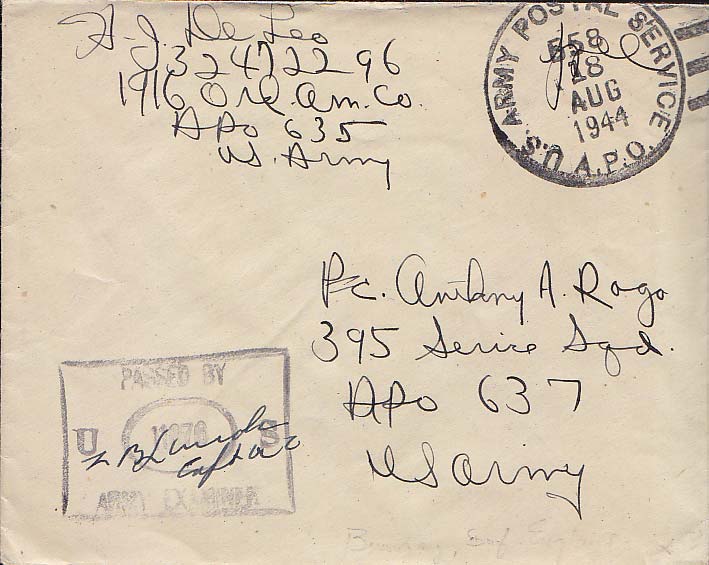 A. J. De Leo
32472296
1916 Ord. Am. Co.
APO 635
US. Army
U.S. ARMY POSTAL SERVICE A.P.O.
558
18
AUG
1944
Free
Pfc. Anthony A. Rago
395 Service Sqd.
APO 637
US Army
PASSED BY
U S
ARMY EXAMINER
Capt